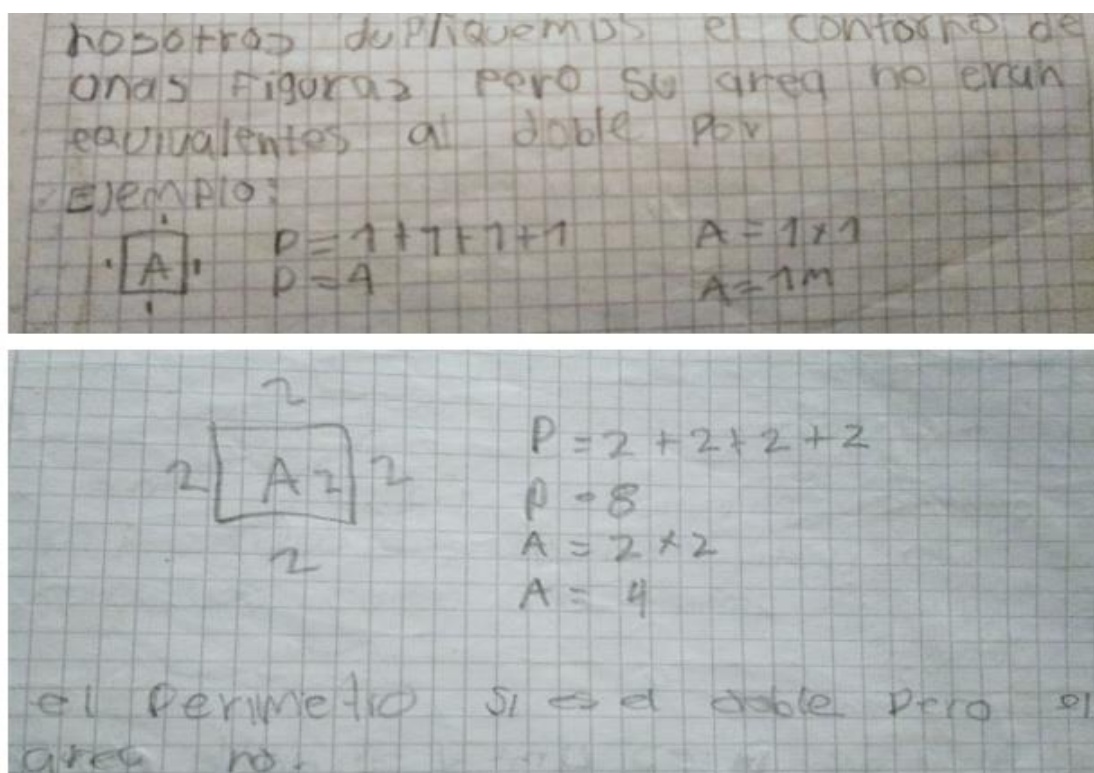 nosotros dupliquemos el contorno de
unas Figuras pero su area no eran
equivalentes al doble por
Ejemplo:
1
1 A 1 P=1+1+1+1 A=1x1
P=4 A=1m
1
2
2 A2 2 P=2+2+2+2
P=8
2 A=2x2
A=4
el Perimetro si es el doble pero el
area no.